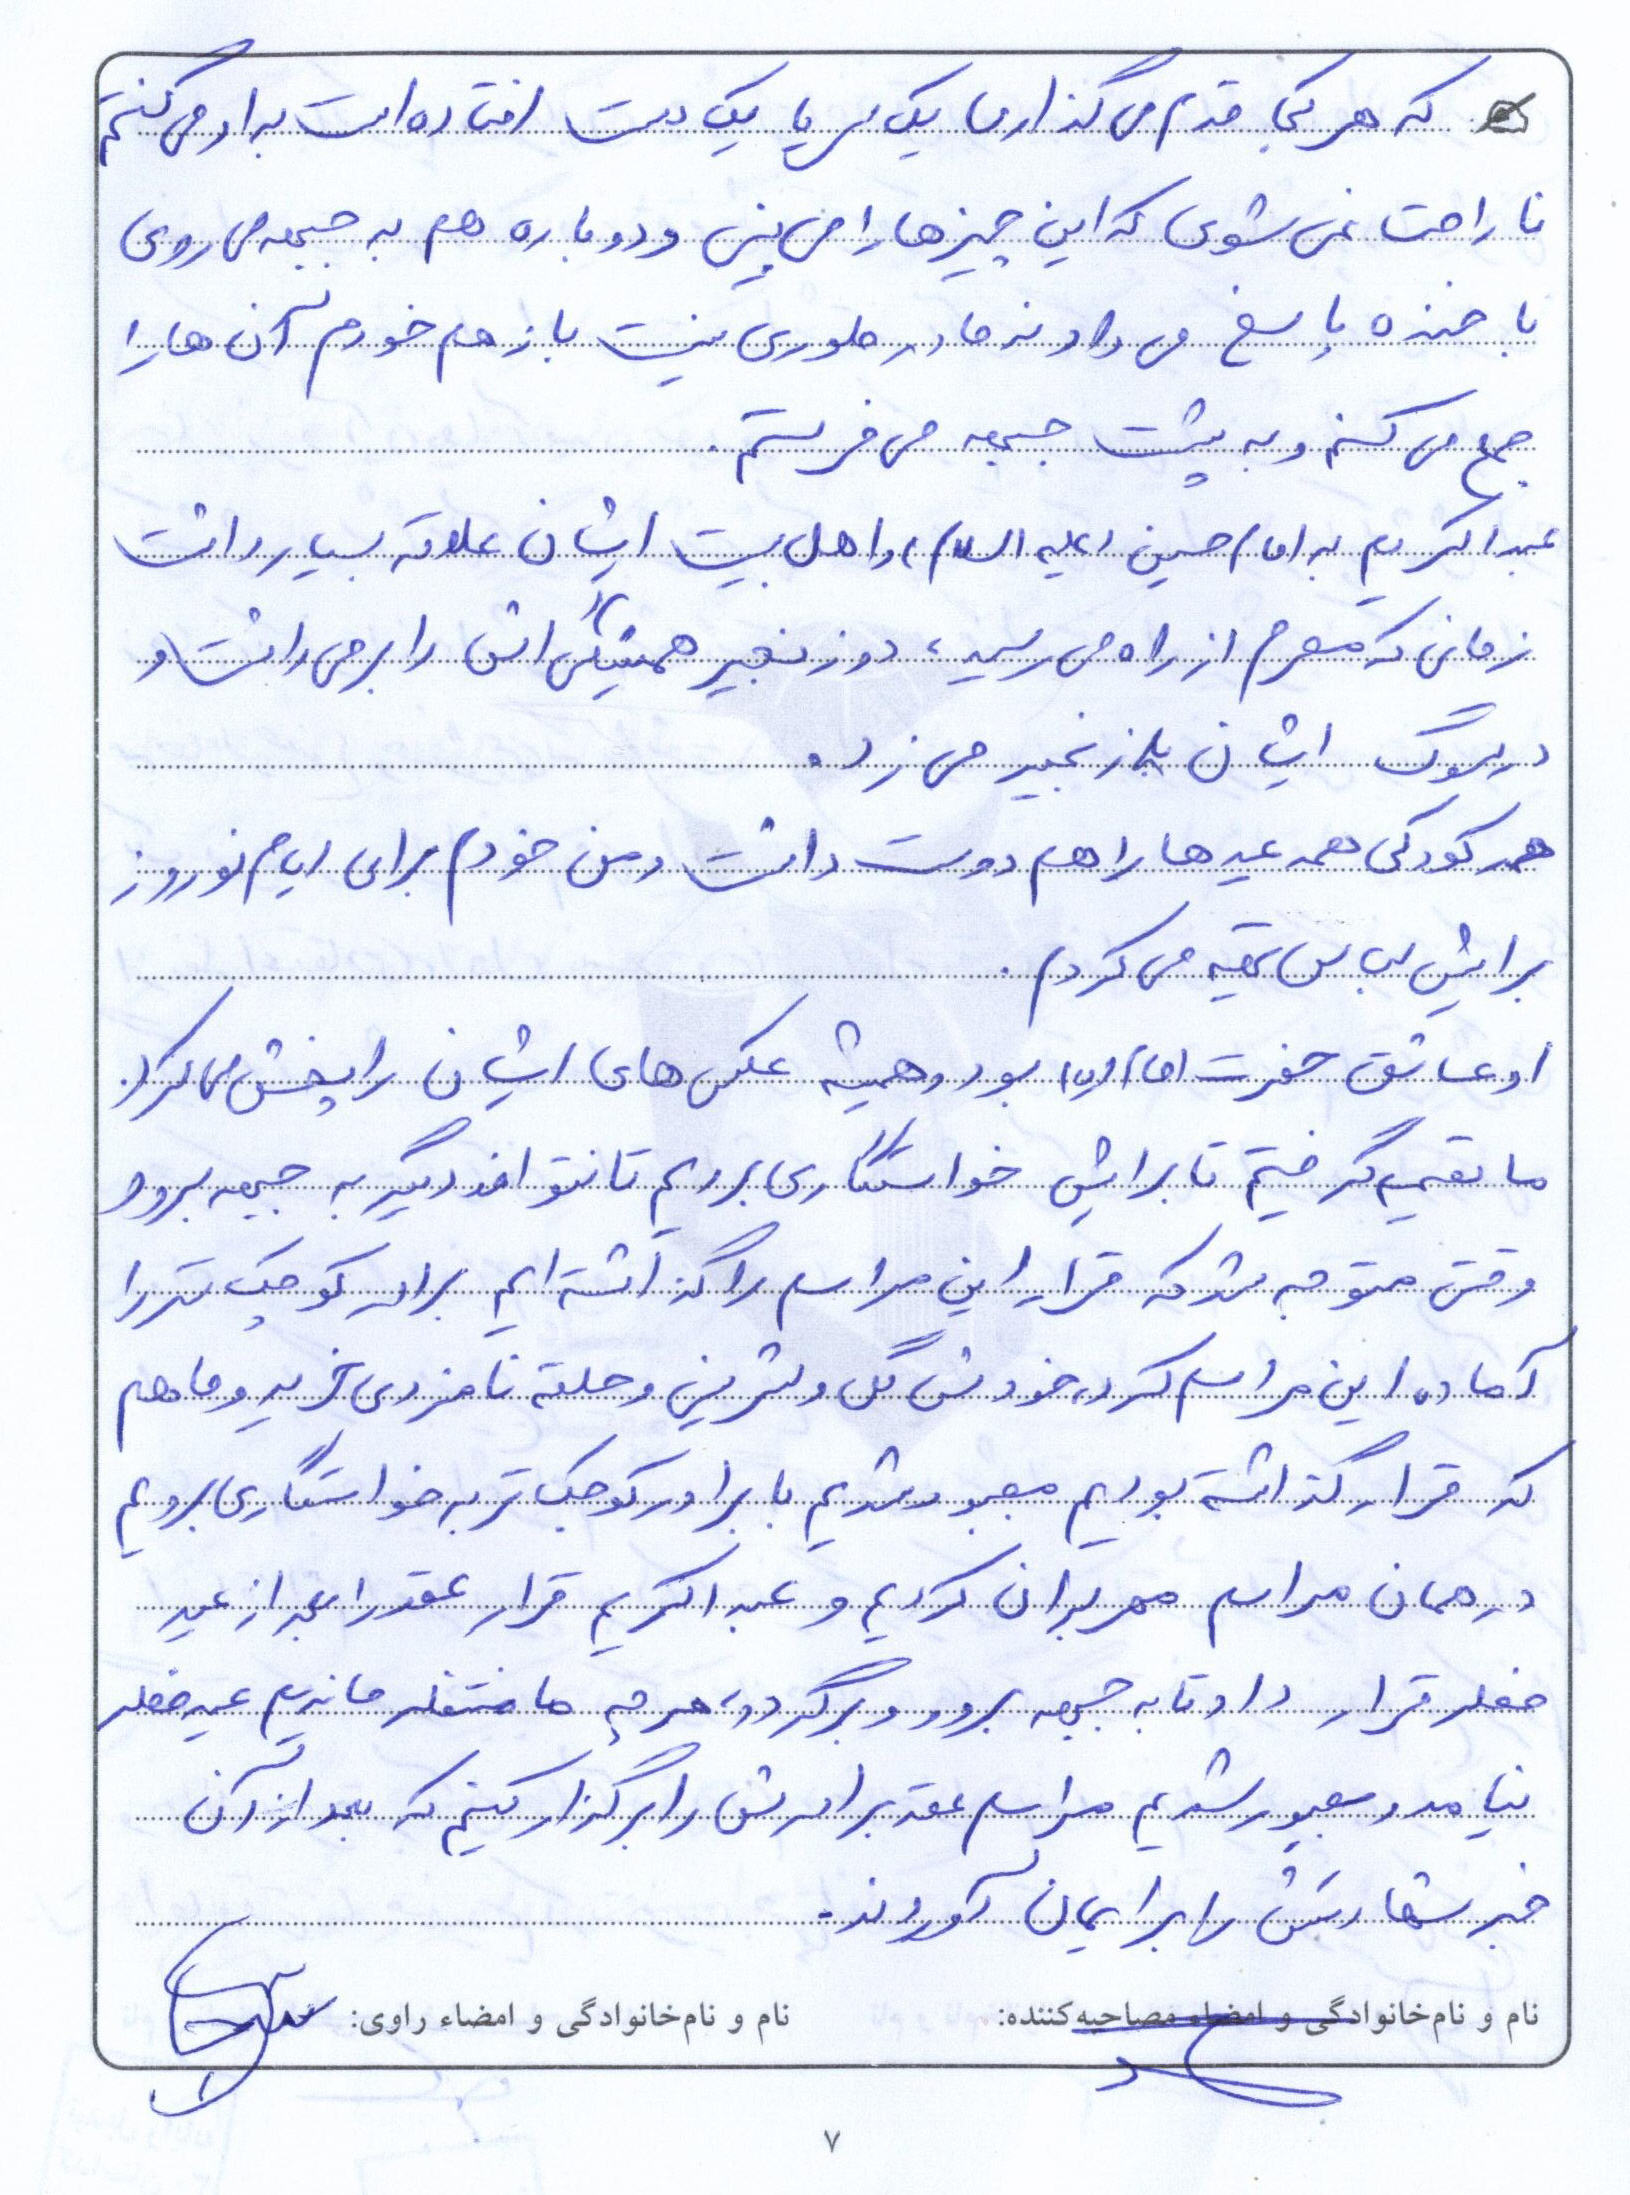 که هر کجا قدم می گذاری یک سر یا یک دست افتاده است به او می گفتم
ناراحت نمی شوی که این چیزها را می بینی و دوباره هم به جبهه می روی
با خنده پاسخ می داد نه مادر طوری نیست باز هم خودم آن ها را
جمع می کنم و به پشت جبهه می فرستم.
عبدالکریم به امام حسین (علیه السلام) و اهل بیت ایشان علاقه بسیار داشت
زمانی که محرم از راه می رسید، دو زنجیر همیشگی اش را بر می داشت و
در سوگ ایشان زنجیر می زد.
همه عیدها را هم دوست داشت و من خودم برای ایام نوروز
برایش لباس تهیه می کردم.
او عاشق حضرت امام (ره) بود و همیشه عکس های ایشان را پخش می کرد.
ما تصمیم گرفتیم تا برایش خواستگاری برویم تا نتواند دیگر به جبهه برود
وقتی متوجه شد که قرار این مراسم را گذاشته ایم برادر کوچک تر را
آماده این مراسم کرد، خودش گل و شیرینی و حلقه نامزدی خرید و ما هم
که قرار گذاشته بودیم مجبور شدیم با برادر کوچک تر به خواستگاری برویم
در همان مراسم مهربران کردیم و عبدالکریم قرار عقد را بعد از عید
فطر قرار داد تا به جبهه برود و برگردد، هر چه ما منتظر ماندیم عید فطر
نیامد و مجبور شدیم مراسم عقد برادرش را برگزار کنیم که بعد از آن
خبر شهادتش را برایمان آوردند.
نام و نام‌خانوادگی و امضاء مصاحبه‌کننده: نام و نام‌خانوادگی و امضاء راوی:
۷